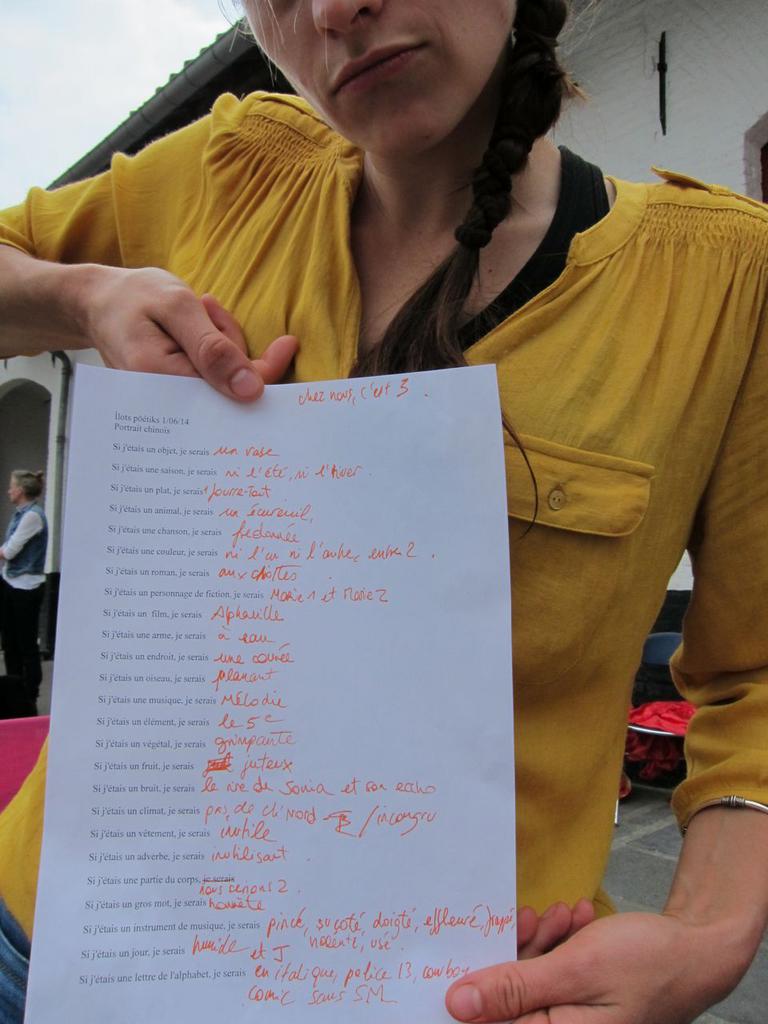 chez nous, c'est 3.
Ilots pöétiks 1/06/14
Portrait chinois
Si j'étais un objet, je serais un vase
Si j'étais une saison, je serais ni l'été, ni l'hiver.
Si j'étais un plat, je serais fourre-tout
Si j'étais un animal, je serais un écureuil,
Si j'étais une chanson, je serais fredonnée
Si j'étais une couleur, je serais ni l'un ni l'autre, entre 2.
Si j'étais un roman, je serais aux chiottes
Si j'étais un personnage de fiction, je serais Marie 1 et Marie 2
Si j'étais un film, je serais Alphaville
Si j'étais une arme, je serais à eau
Si j'étais un endroit, je serais une
Si j'étais un oiseau, je serais planant
Si j'étais une musique, je serais Mélodie
Si j'étais un élément, je serais le 5e
Si j'étais un végétal, je serais grimpante
Si j'étais un fruit, je serais juteux
Si j'étais un bruit, je serais le rire de Sonia et son echo
Si j'étais un climat, je serais pas de ch'Nord /incongru
Si j'étais un vêtement, je serais inutile
Si j'étais un adverbe, je serais inutilisant.
Si j'étais une partie du corps, je serais
nous serions 2.
Si j'étais un gros mot, je serais honnête
Si j'étais un instrument de musique, je serais pincé, suçoté, doigté, effleuré, frappé,
usé.
Si j'étais un jour, je serais humide et J
Si j'étais une lettre de l'alphabet, je serais en italique, police 13, cowboy
comic sans SM